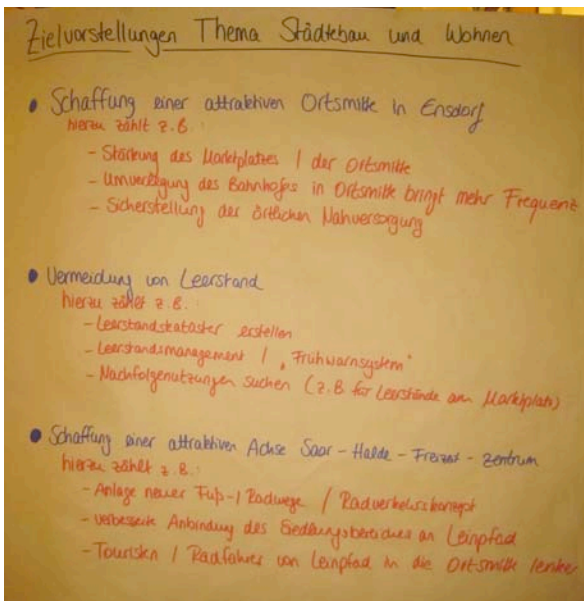 Zielvorstellungen Thema Städtebau und Wohnen
• Schaffung einer attraktiven Ortsmitte in Ensdorf
hierzu zählt z.B.:
- Stärkung des Marktplatzes / der Ortsmitte
- Umverlegung des Bahnhofes in Ortsmitte bringt mehr Frequenz
- Sicherstellung der örtlichen Nahversorgung
• Vermeidung von Leerstand
hierzu zählt z.B.:
- Leerstandskataster erstellen
- Leerstandsmanagement / „Frühwarnsystem"
- Nachfolgenutzungen suchen (z.B. für Leerstände am Marktplatz)
• Schaffung einer attraktiven Achse Saar - Halde - Freizeit - Zentrum
hierzu zählt z.B.:
- Anlage neuer Fuß-/Radwege / Radverkehrskonzept
- verbesserte Anbindung des Siedlungsbereiches an Leinpfad
- Touristen / Radfahrer von Leinpfad in die Ortsmitte lenken